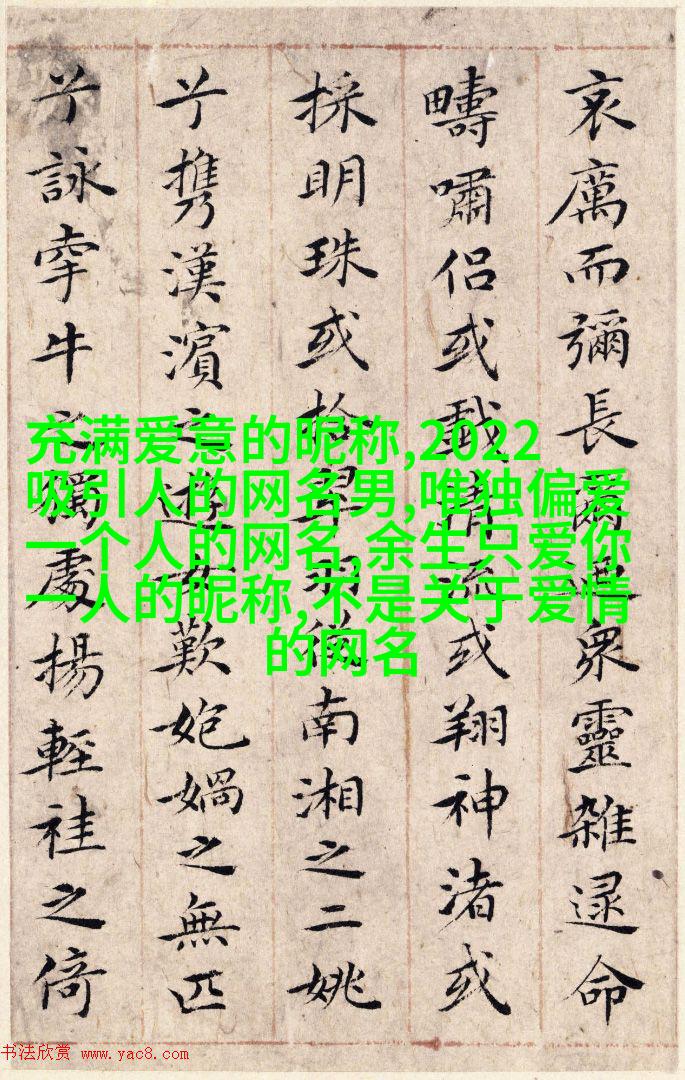 哀厲而彌長爾迺眾靈雜遝命
疇嘯侶或戲清流或翔神渚或
採明珠或拾翠羽從南湘之二姚
兮攜漢濱之遊女歎媧之無匹
兮詠牽牛之獨處揚輕袿之倚
充满爱意的昵称,2022
吸引人的网名男,唯独偏爱
一个人的网名,余生只爱你
一人的昵称,不是关于爱情
的网名
书法欣赏 www.yac8.com